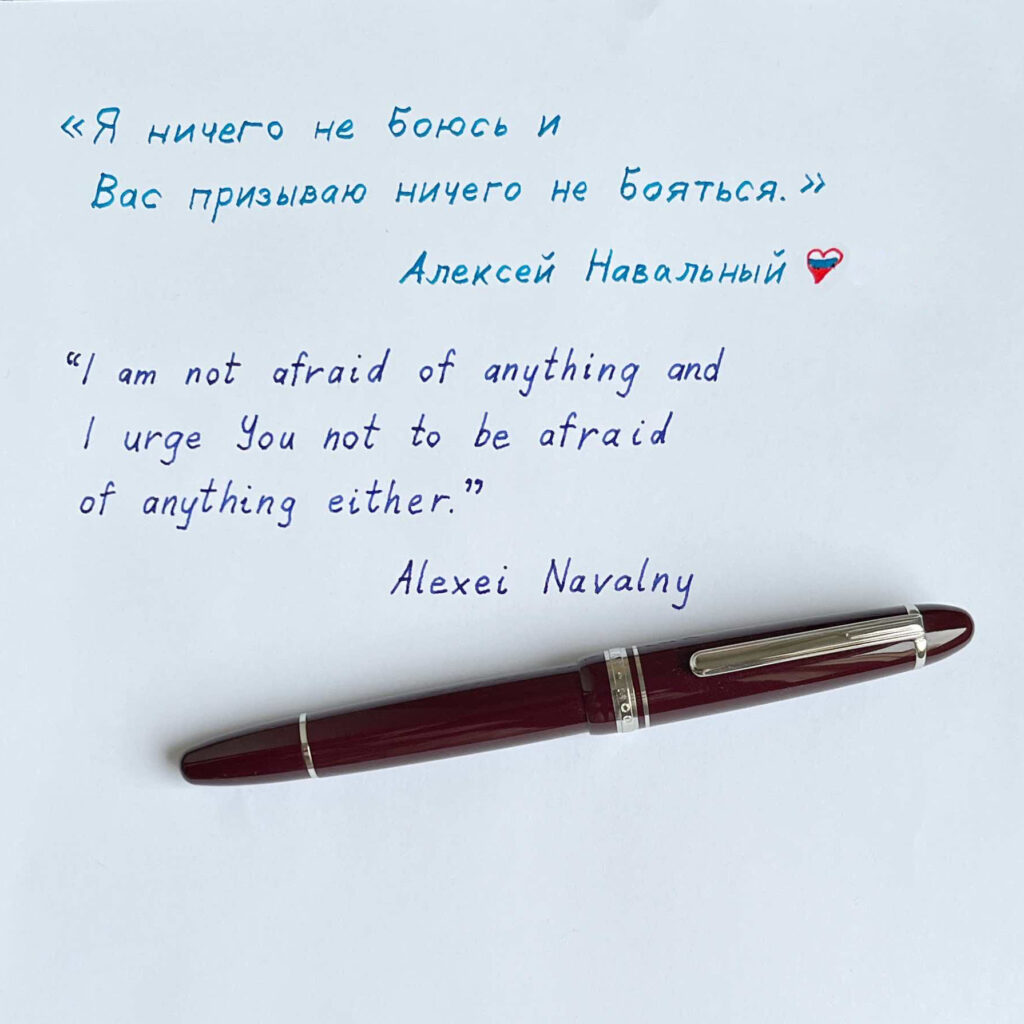 «Я ничего не боюсь и
Вас призываю ничего не бояться.»
Алексей Навальный
“I am not afraid of anything and
I urge You not to be afraid
of anything either.”
Alexei Navalny